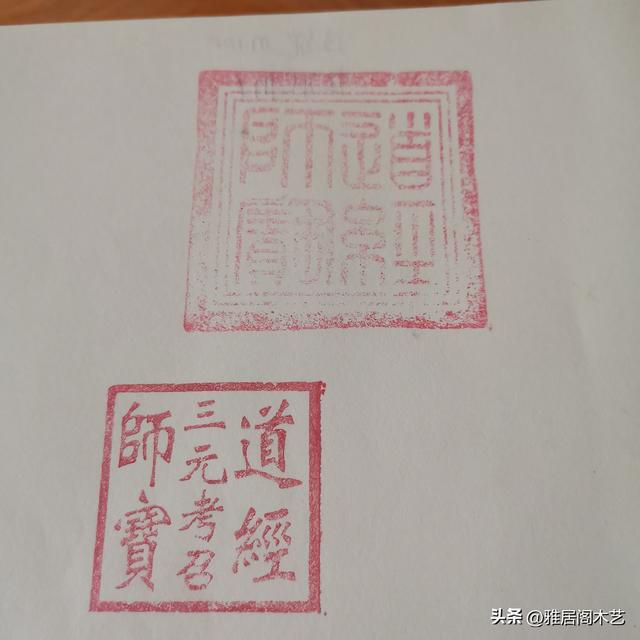 道經師寶
道經
三元考召
師寶
头条 @雅居阁木艺